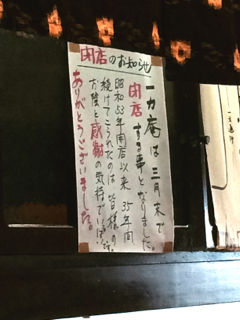 閉店のお知らせ
一力庵は三月末で
閉店する事となりました。
昭和53年開店以来 35年間
続けてこられたのは 皆様の
お陰と感謝の気持でいっぱい
ありがとうございました。